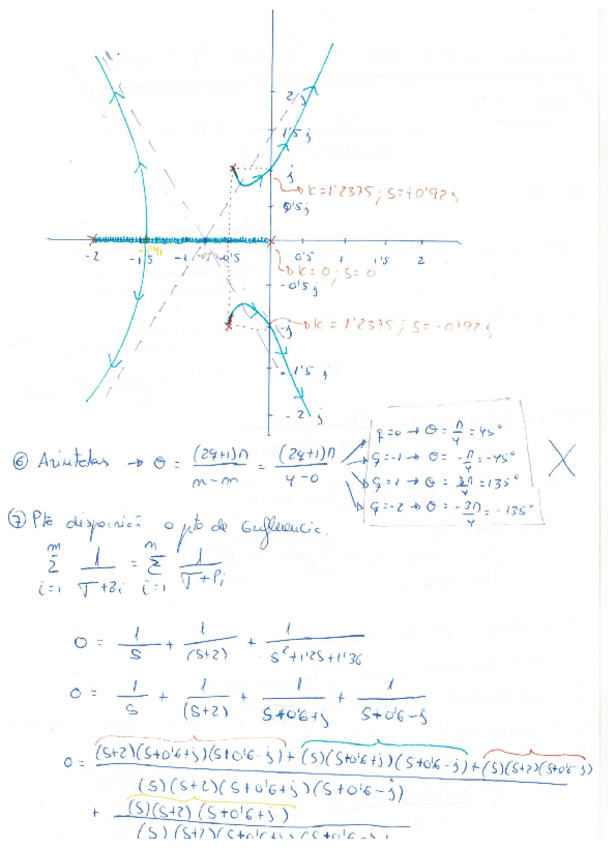 2j
1'5j
j
→ K=1'2375; S=+0'92j
0'5j
-2 -1'5 -1 -0'5 0'5 1 1'5 2
→ K=0; S=0
-0'5j
-j → K=1'2375; S=-0'92j
-1'5j
-2j
⑥ Asíntotas → θ = (2q+1)π / n-m = (2q+1)π / 4-0
q=0 → θ = π/4 = 45°
q=-1 → θ = -π/4 = -45°
q=1 → θ = 3π/4 = 135°
q=-2 → θ = -3π/4 = -135°
X
⑦ Pto dispersión o pto de confluencia.
m Σ i=1 1/(σ+zi) = n Σ i=1 1/(σ+pi)
0 = 1/S + 1/(S+2) + 1/(S²+1'2S+1'36)
0 = 1/S + 1/(S+2) + 1/(S+0'6+j) + 1/(S+0'6-j)
0 = (S+2)(S+0'6+j)(S+0'6-j) + (S)(S+0'6+j)(S+0'6-j) + (S)(S+2)(S+0'6-j)
(S)(S+2)(S+0'6+j)(S+0'6-j)
+ (S)(S+2)(S+0'6+j)
(S)(S+2)(S+0'6+j)(S+0'6-j)